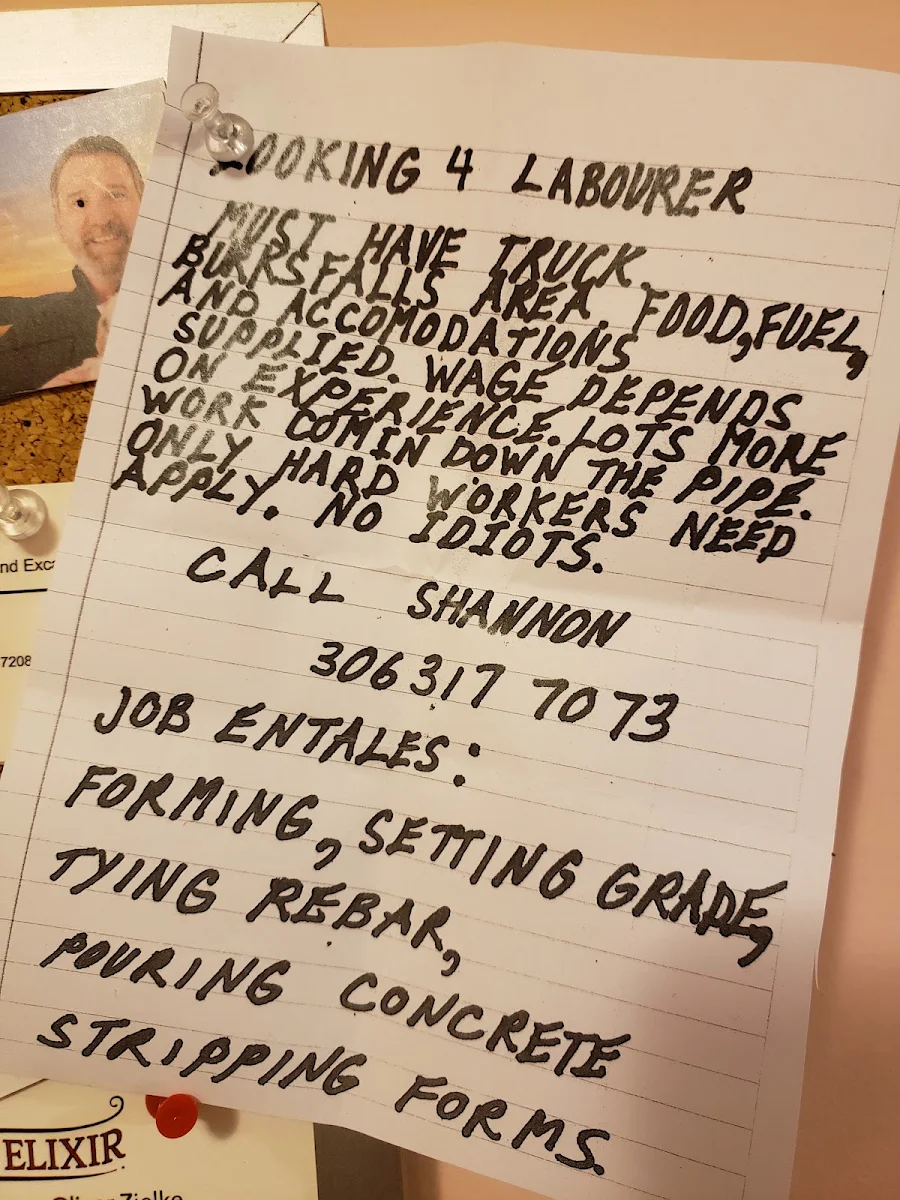 LOOKING 4 LABOURER
MUST HAVE TRUCK.
BURKSFALLS AREA. FOOD, FUEL,
AND ACCOMODATIONS
SUPPLIED. WAGE DEPENDS
ON EXPERIENCE. LOTS MORE
WORK COMIN DOWN THE PIPE.
ONLY HARD WORKERS NEED
APPLY. NO IDIOTS.
CALL SHANNON
306 317 7073
JOB ENTALES:
FORMING, SETTING GRADE,
TYING REBAR,
POURING CONCRETE
STRIPPING FORMS.
nd Exc
7208
ELIXIR